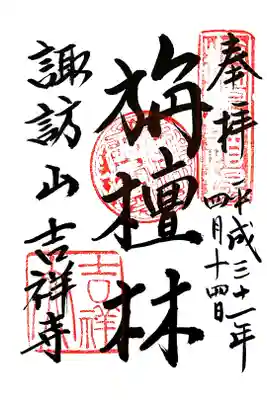 奉拝
平成三十一年
四月十四日
旃檀林
諏訪山吉祥寺
吉祥